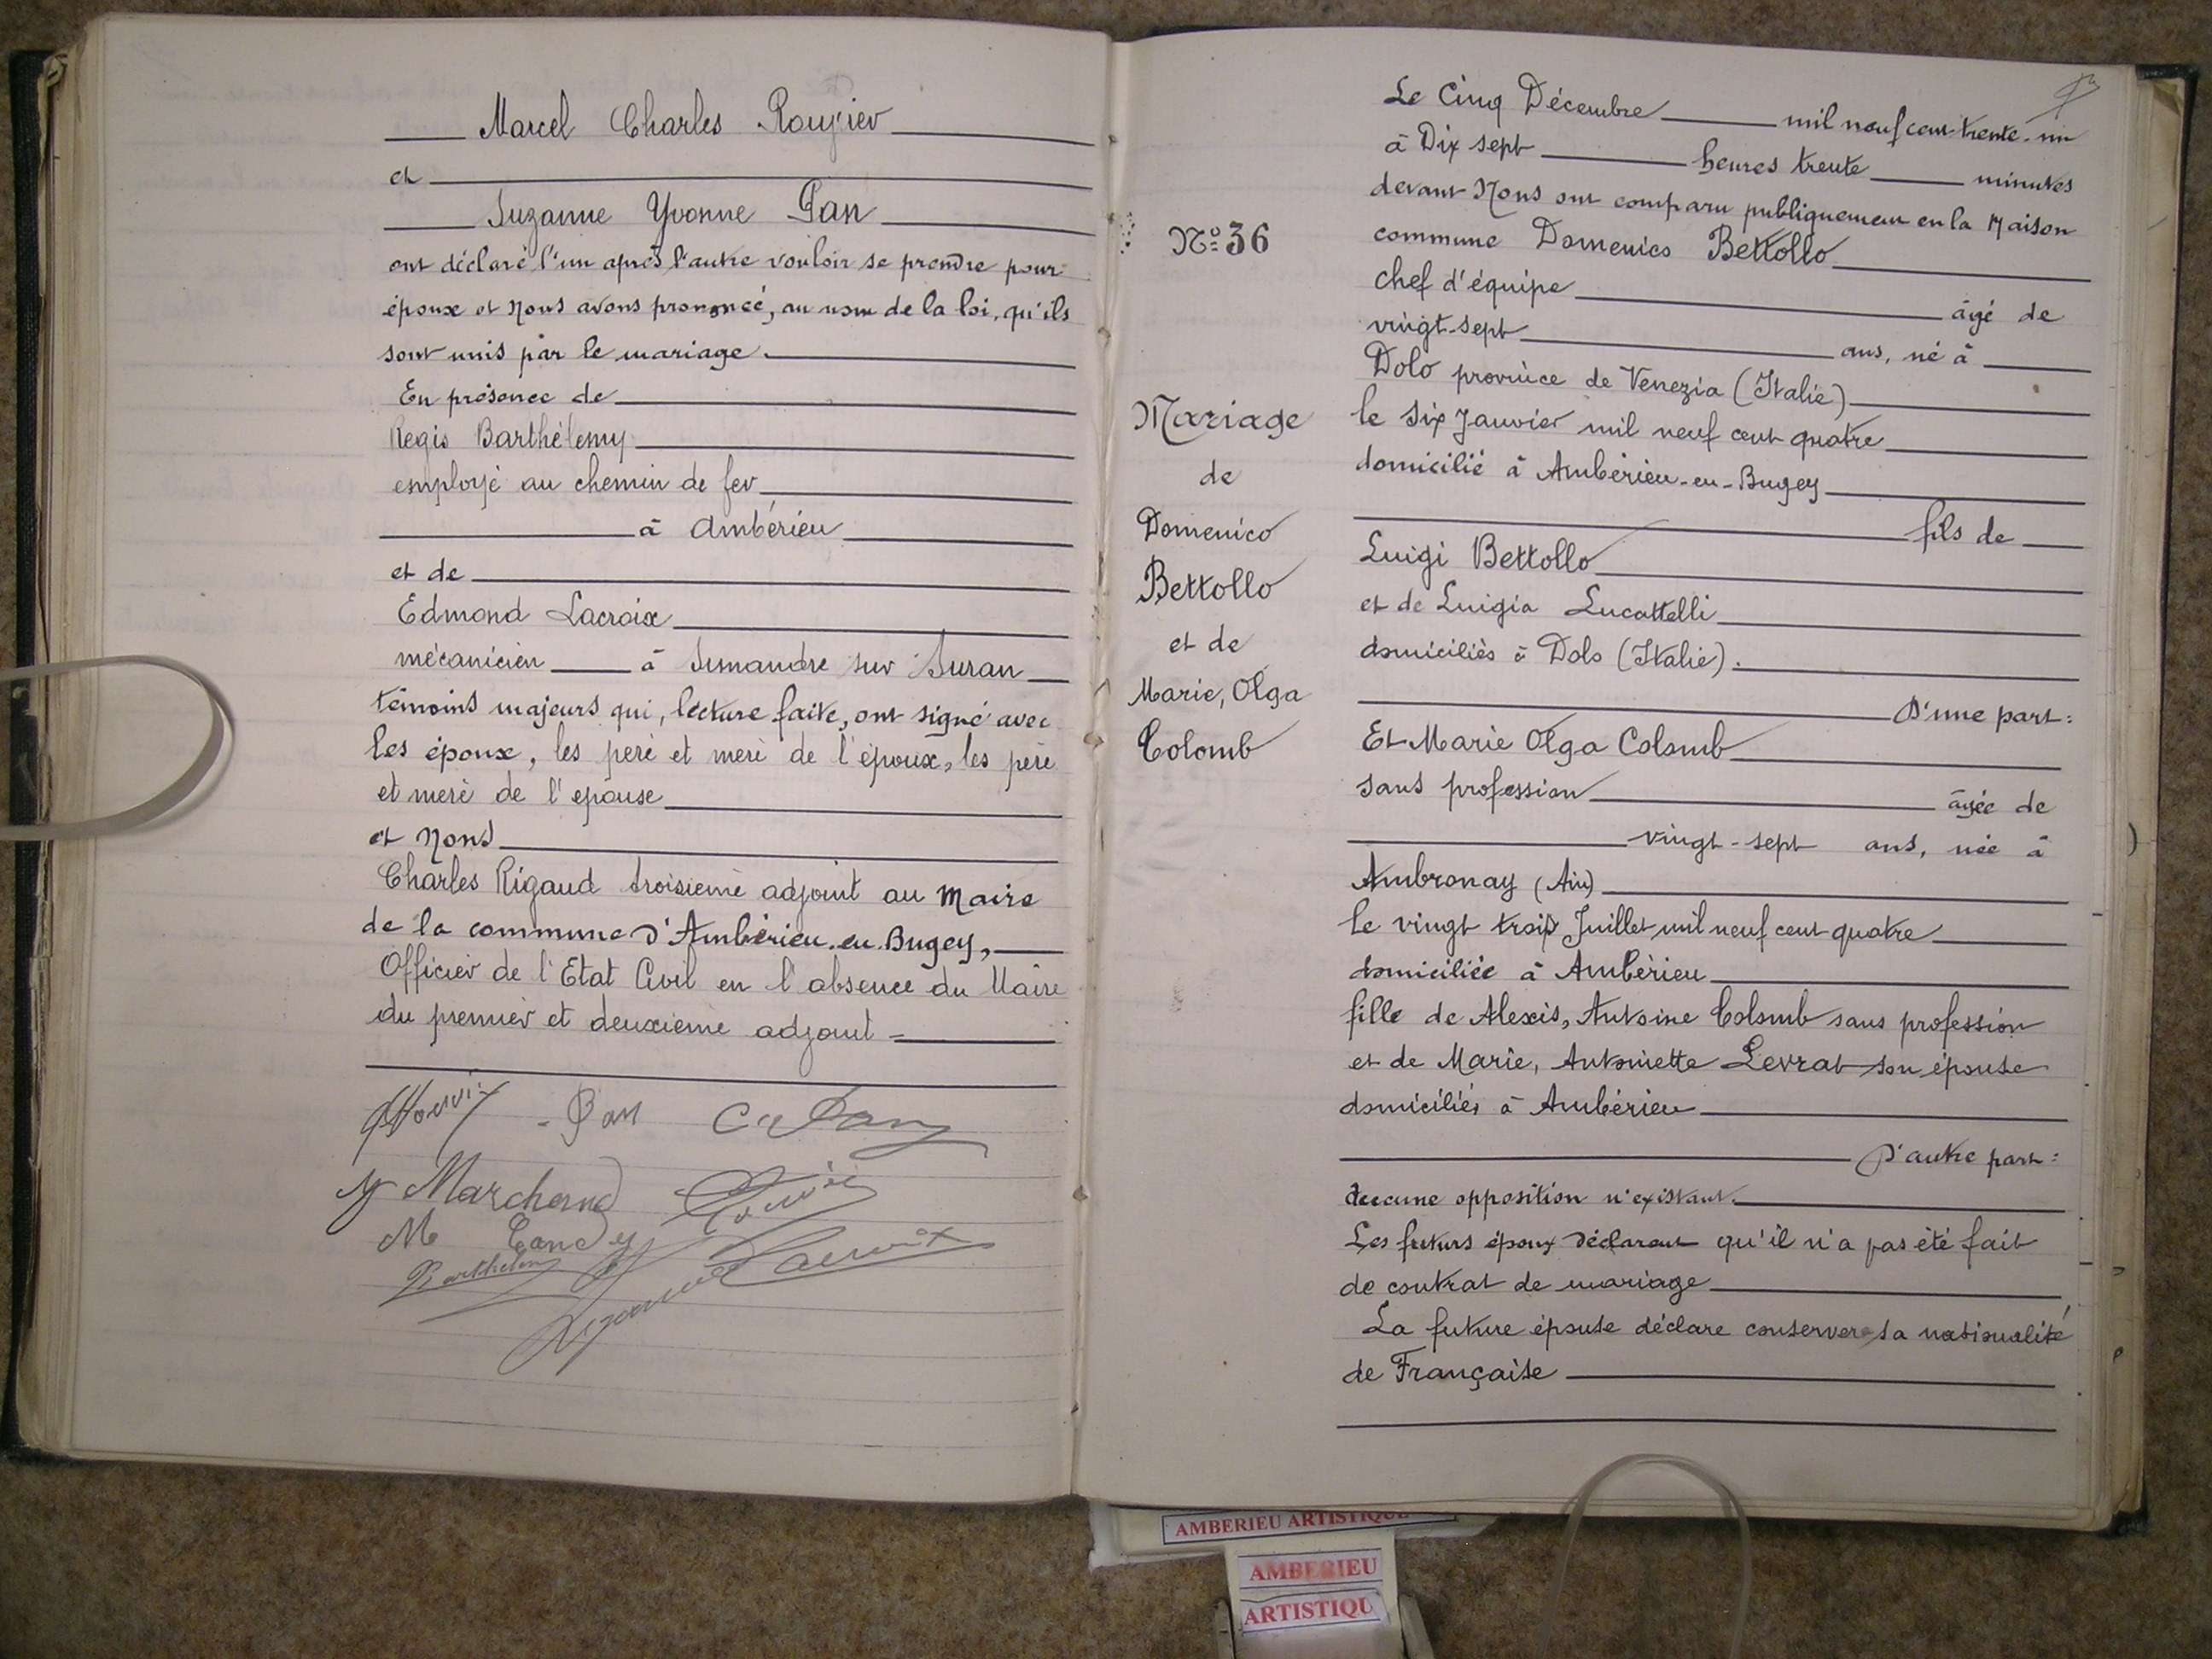 Marcel Charles Roujier
et
Suzanne Yvonne Pan
ont déclaré l'un après l'autre vouloir se prendre pour
époux et Nous avons prononcé, au nom de la loi, qu'ils
sont unis par le mariage.
En présence de
Regis Barthélemy
employé au chemin de fer
à Ambérieu
et de
Edmond Lacroix
mécanicien à Simandre sur Suran
témoins majeurs qui, lecture faite, ont signé avec
les époux, les père et mère de l'époux, les père
et mère de l'epouse
et Nous
Charles Rigaud troisième adjoint au Maire
de la commune d'Ambérieu-en-Bugey,
Officier de l'Etat Civil en l'absence du Maire
du premier et deuxième adjoint
Pan
Marchand
Barthelemy
Lacroix
Le Cinq Décembre mil neuf cent trente-un
à Dix sept heures trente minutes
devant Nous ont comparu publiquement en la Maison
commune Domenico Bettollo
chef d'équipe âgé de
vingt-sept ans, né à
Dolo province de Venezia (Italie)
le six Janvier mil neuf cent quatre
domicilié à Ambérieu-en-Bugey
fils de
Luigi Bettollo
et de Luigia Lucattelli
domiciliés à Dolo (Italie).
D'une part:
Et Marie Olga Colomb
sans profession âgée de
vingt-sept ans, née à
Ambronay (Ain)
le vingt trois Juillet mil neuf cent quatre
domiciliée à Ambérieu
fille de Alexis, Antoine Colomb sans profession
et de Marie, Antoinette Levrat son épouse
domiciliés à Ambérieu
D'autre part:
Aucune opposition n'existant.
Les futurs époux déclarent qu'il n'a pas été fait
de contrat de mariage
La future épouse déclare conserver sa nationalité
de Française
N° 36
Mariage
de
Domenico
Bettollo
et de
Marie, Olga
Colomb
AMBERIEU ARTISTIQUE
AMBERIEU
ARTISTIQU